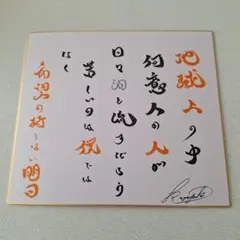 地球上の中
何億人の人が
日々泪を流すだろう
苦しいのは僕では
なく
希望の持てない明日